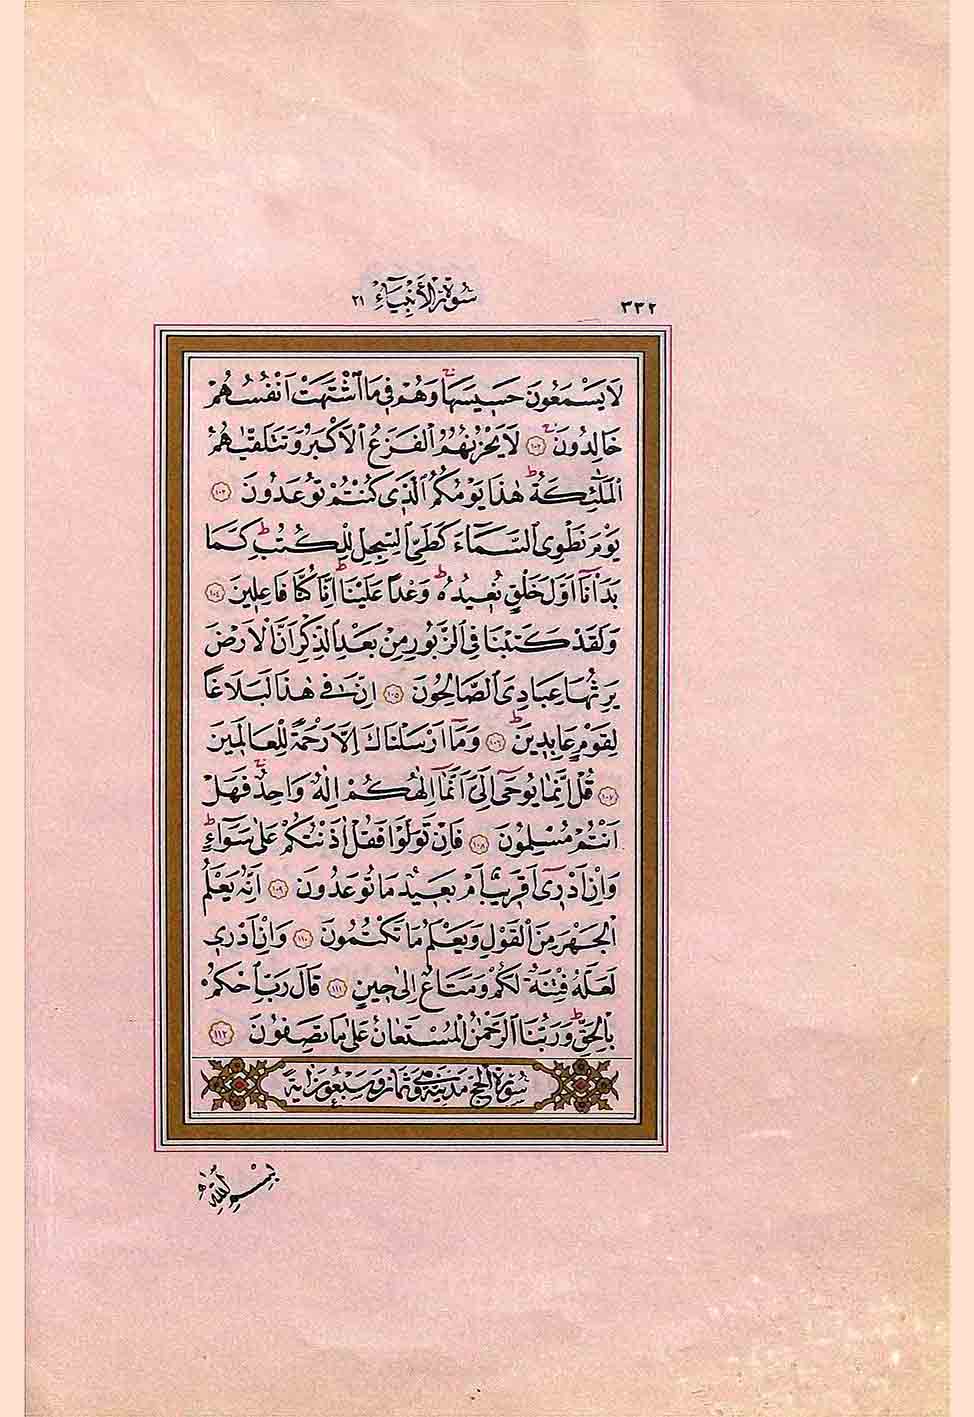 ٣٣٢ سُورَةُ الْأَنْبِيَآءِ ٢١
لَا يَسْمَعُونَ حَسِيسَهَا وَهُمْ فِي مَا اشْتَهَتْ اَنْفُسُهُمْ
خَالِدُونَ ﴿١٠٢﴾ لَا يَحْزُنُهُمُ الْفَزَعُ الْاَكْبَرُ وَتَتَلَقّٰيهُمُ
الْمَلٰٓئِكَةُ هٰذَا يَوْمُكُمُ الَّذِي كُنْتُمْ تُوعَدُونَ ﴿١٠٣﴾
يَوْمَ نَطْوِي السَّمَآءَ كَطَيِّ السِّجِلِّ لِلْكُتُبِ كَمَا
بَدَأْنَآ اَوَّلَ خَلْقٍ نُعِيدُهُ وَعْداً عَلَيْنَا اِنَّا كُنَّا فَاعِلِينَ ﴿١٠٤﴾
وَلَقَدْ كَتَبْنَا فِي الزَّبُورِ مِنْ بَعْدِ الذِّكْرِ اَنَّ الْاَرْضَ
يَرِثُهَا عِبَادِيَ الصَّالِحُونَ ﴿١٠٥﴾ اِنَّ فِي هٰذَا لَبَلَاغاً
لِقَوْمٍ عَابِدِينَ ﴿١٠٦﴾ وَمَآ اَرْسَلْنَاكَ اِلَّا رَحْمَةً لِلْعَالَمِينَ
﴿١٠٧﴾ قُلْ اِنَّمَا يُوحٰٓى اِلَيَّ اَنَّمَآ اِلٰهُكُمْ اِلٰهٌ وَاحِدٌ فَهَلْ
اَنْتُمْ مُسْلِمُونَ ﴿١٠٨﴾ فَاِنْ تَوَلَّوْا فَقُلْ اٰذَنْتُكُمْ عَلٰى سَوَآءٍ
وَاِنْ اَدْرِيٓ اَقَرِيبٌ اَمْ بَعِيدٌ مَا تُوعَدُونَ ﴿١٠٩﴾ اِنَّهُ يَعْلَمُ
الْجَهْرَ مِنَ الْقَوْلِ وَيَعْلَمُ مَا تَكْتُمُونَ ﴿١١٠﴾ وَاِنْ اَدْرِي
لَعَلَّهُ فِتْنَةٌ لَكُمْ وَمَتَاعٌ اِلٰى حِينٍ ﴿١١١﴾ قَالَ رَبِّ احْكُمْ
بِالْحَقِّ وَرَبُّنَا الرَّحْمٰنُ الْمُسْتَعَانُ عَلٰى مَا تَصِفُونَ ﴿١١٢﴾
سُورَةُ الْحَجِّ مَدَنِيَّةٌ وَهِيَ ثَمَانٍ وَسَبْعُونَ اٰيَةً
بِسْمِ اللّٰهِ